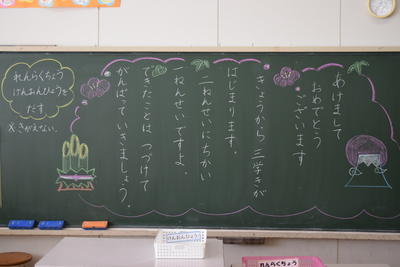 あけまして
おめでとう
ございます
きょうから 三学きが
はじまります。
二ねんせいにちかい
一ねんせいですよ。
できたことは つづけて
がんばっていきましょう。
れんらくちょう
けんおんひょうを
だす
×きがえない。
けんおんひょう
れんらくちょう